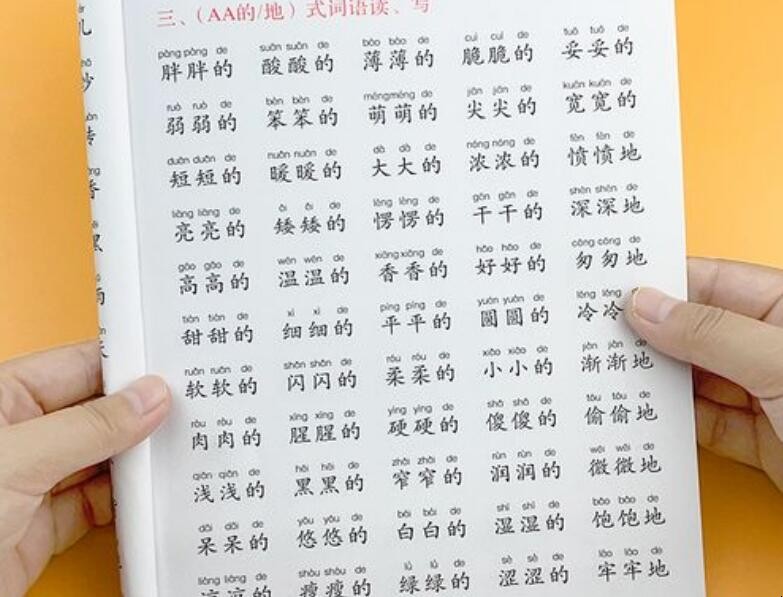 三、（AA的/地）式词语读、写
pàng pàng de suān suān de báo báo de cuì cuì de tuǒ tuǒ de
胖胖的 酸酸的 薄薄的 脆脆的 妥妥的
ruò ruò de bèn bèn de méng méng de jiān jiān de kuān kuān de
弱弱的 笨笨的 萌萌的 尖尖的 宽宽的
duǎn duǎn de nuǎn nuǎn de dà dà de nóng nóng de fèn fèn de
短短的 暖暖的 大大的 浓浓的 愤愤地
liàng liàng de ǎi ǎi de lèng lèng de gān gān de shēn shēn de
亮亮的 矮矮的 愣愣的 干干的 深深地
gāo gāo de wēn wēn de xiāng xiāng de hǎo hǎo de cōng cōng de
高高的 温温的 香香的 好好的 匆匆地
tián tián de xì xì de píng píng de yuán yuán de lěng lěng de
甜甜的 细细的 平平的 圆圆的 冷冷
ruǎn ruǎn de shǎn shǎn de róu róu de xiǎo xiǎo de jiàn jiàn de
软软的 闪闪的 柔柔的 小小的 渐渐地
ròu ròu de xīng xīng de yìng yìng de shǎ shǎ de tōu tōu de
肉肉的 腥腥的 硬硬的 傻傻的 偷偷地
qiǎn qiǎn de hēi hēi de zhǎi zhǎi de rùn rùn de wēi wēi de
浅浅的 黑黑的 窄窄的 润润的 微微地
dāi dāi de yōu yōu de bái bái de shī shī de bǎo bǎo de
呆呆的 悠悠的 白白的 湿湿的 饱饱地
liáng liáng de shòu shòu de lǜ lǜ de sè sè de láo láo de
凉凉的 瘦瘦的 绿绿的 涩涩的 牢牢地